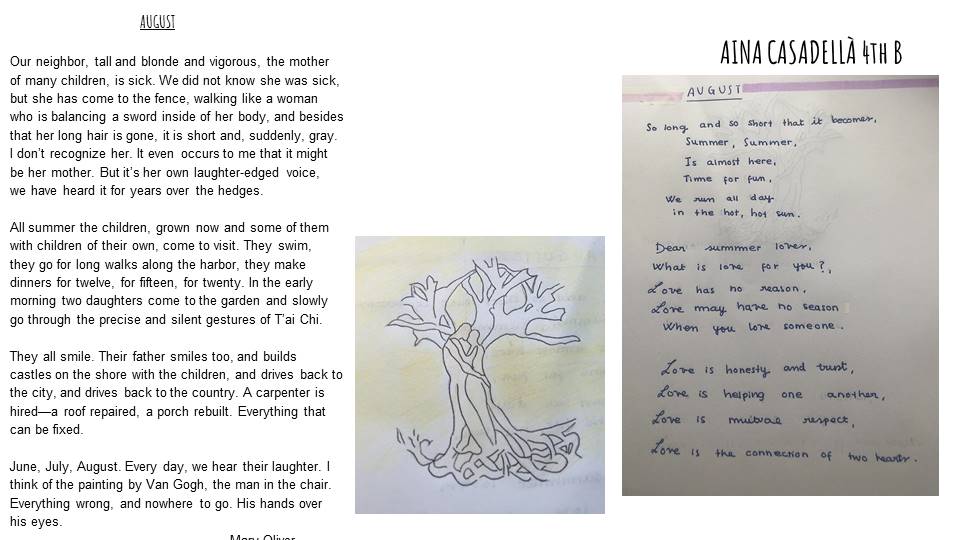 AUGUST
Our neighbor, tall and blonde and vigorous, the mother
of many children, is sick. We did not know she was sick,
but she has come to the fence, walking like a woman
who is balancing a sword inside of her body, and besides
that her long hair is gone, it is short and, suddenly, gray.
I don't recognize her. It even occurs to me that it might
be her mother. But it's her own laughter-edged voice,
we have heard it for years over the hedges.
All summer the children, grown now and some of them
with children of their own, come to visit. They swim,
they go for long walks along the harbor, they make
dinners for twelve, for fifteen, for twenty. In the early
morning two daughters come to the garden and slowly
go through the precise and silent gestures of T'ai Chi.
They all smile. Their father smiles too, and builds
castles on the shore with the children, and drives back to
the city, and drives back to the country. A carpenter is
hired—a roof repaired, a porch rebuilt. Everything that
can be fixed.
June, July, August. Every day, we hear their laughter. I
think of the painting by Van Gogh, the man in the chair.
Everything wrong, and nowhere to go. His hands over
his eyes.
Mary Oliver
AINA CASADELLÀ 4TH B
AUGUST
So long and so short that it becomes,
Summer, Summer,
Is almost here,
Time for fun,
We run all day
in the hot, hot sun.
Dear summer lover,
What is love for you?,
Love has no reason,
Love may have no season
When you love someone.
Love is honesty and trust,
Love is helping one another,
Love is mutual respect,
Love is the connection of two hearts.